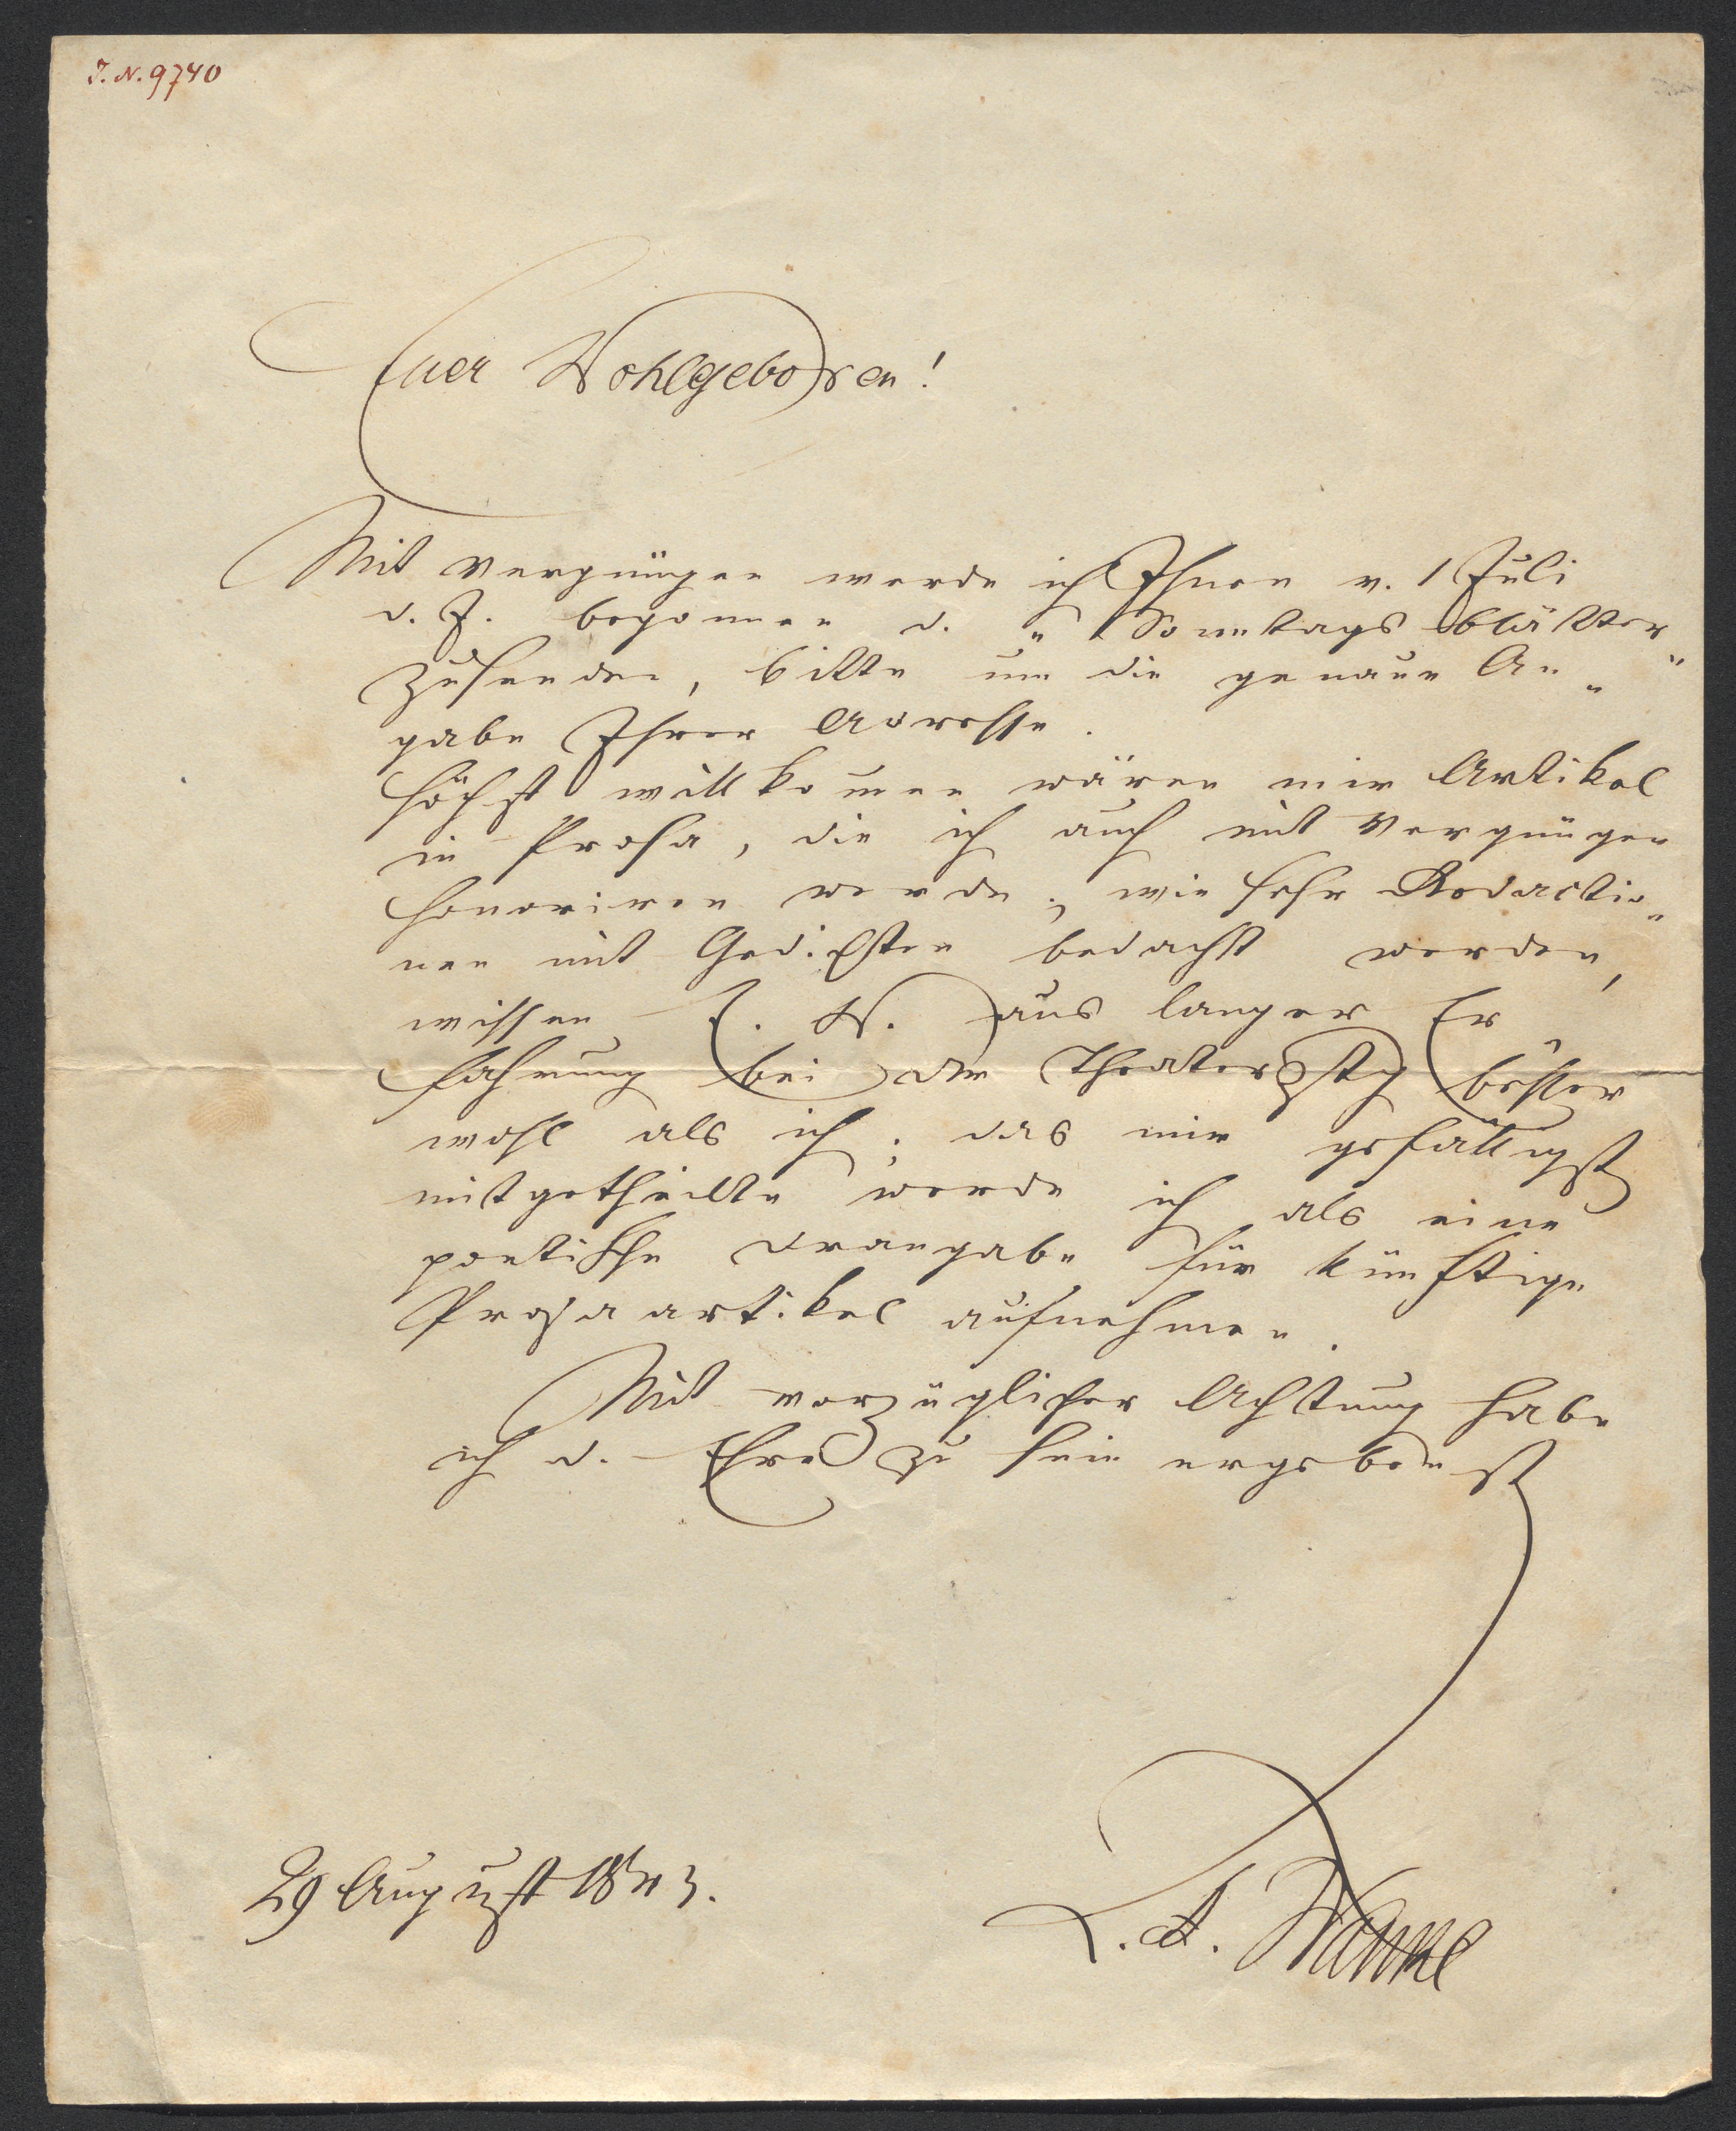 I. N. 9740
Euer Wohlgeboren!
Mit Vergnügen werde ich Ihnen v. 1 Juli
d. J. begonnen d. „Sonntagsblätter"
zusenden, bitte um die genaue An„
gabe Ihrer Adresse.
Höchst willkommen wären mir Artikel
in Prosa, die ich auch mit Vergnügen
honoriren werde; wie sehr Redactio„
nen mit Gedichten bedacht werden,
wissen E. W. aus langer Er
fahrung bei der Theaterztg besser
wohl als ich; das mir gefälligst
mitgetheilte werde ich als eine
poetische Drangabe für künftige
Prosaartikel aufnehmen.
Mit vorzüglicher Achtung habe
ich d. Ehre zu sein ergebenst
29 August 1843.
L. A. Frankl